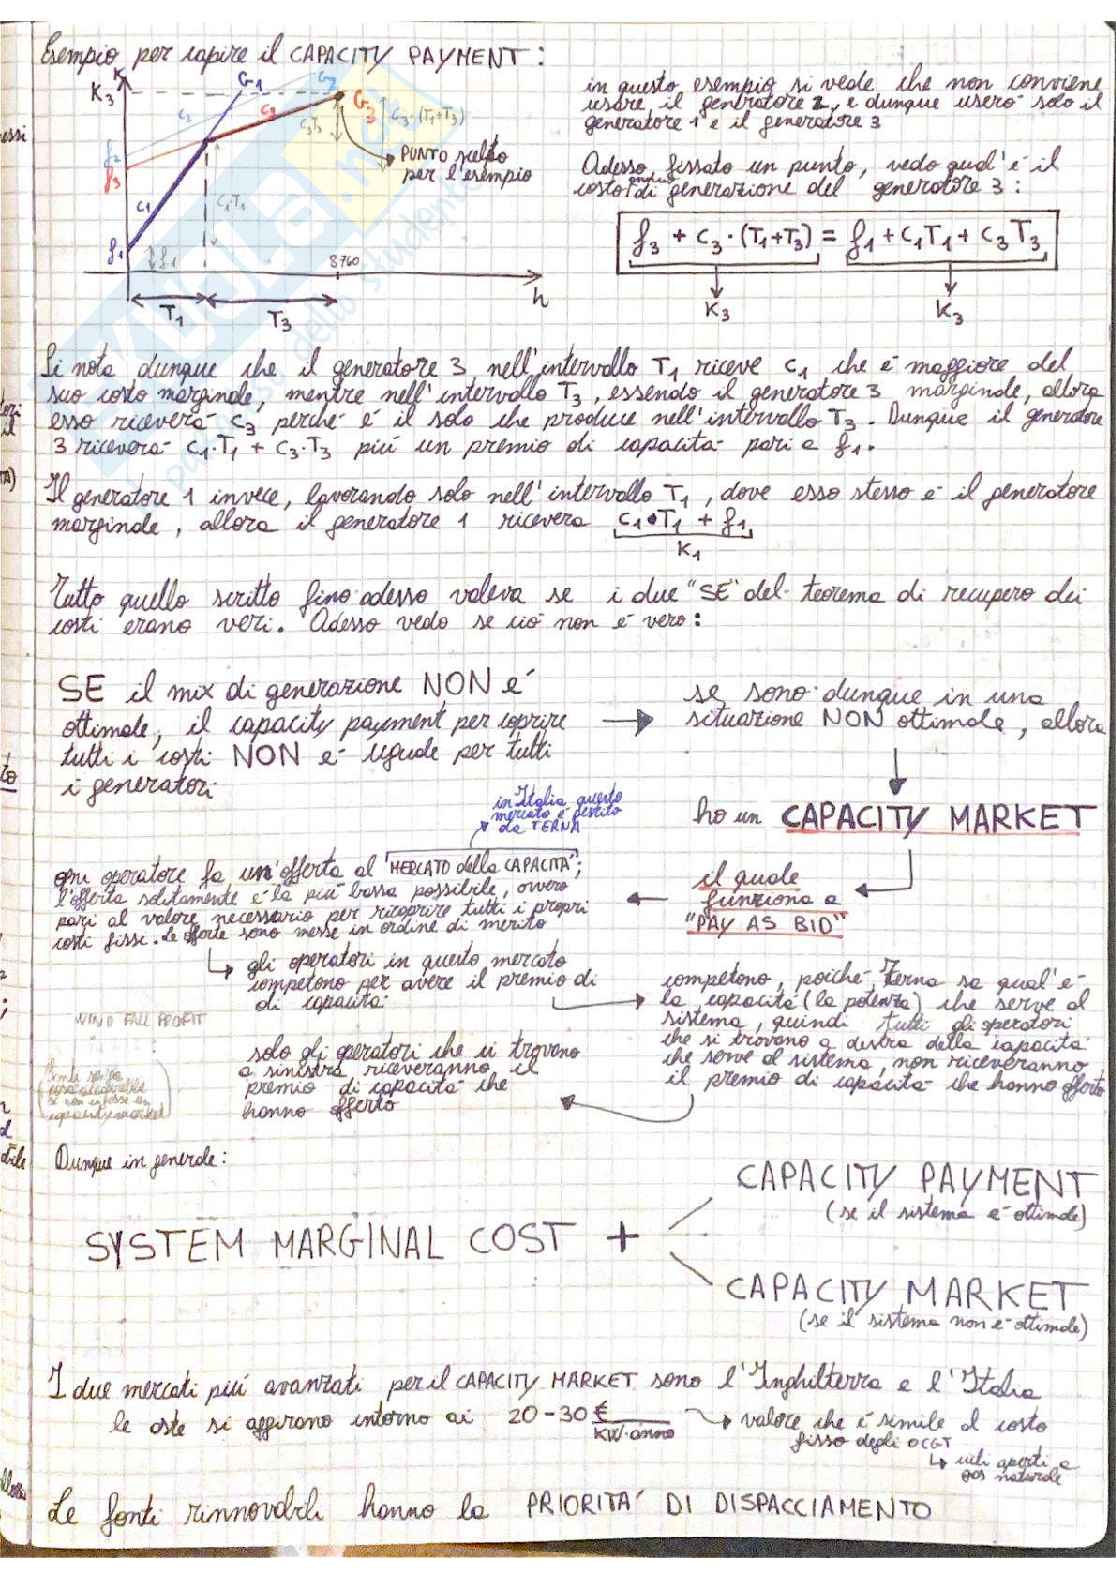 Esempio per capire il CAPACITY PAYMENT:
K
K3
G1
G2
G3
c2
c3
c3T3
c3·(T1+T3)
f2
f3
c1
c1T1
PUNTO scelto
per l'esempio
f1
f1
8760
h
T1
T3
in questo esempio si vede che non conviene
usare il generatore 2, e dunque userò solo il
generatore 1 e il generatore 3
Adesso fissato un punto, vedo qual'è il
costo di generazione del generatore 3:
f3 + c3·(T1+T3) = f1 + c1T1 + c3T3
K3
K3
Si nota dunque che il generatore 3 nell'intervallo T1 riceve c1 che è maggiore del
suo costo marginale, mentre nell'intervallo T3, essendo il generatore 3 marginale, allora
esso riceverà c3 perché è il solo che produce nell'intervallo T3. Dunque il generatore
3 riceverà c1·T1 + c3·T3 più un premio di capacità pari a f1.
Il generatore 1 invece, lavorando solo nell'intervallo T1, dove esso stesso è il generatore
marginale, allora il generatore 1 riceverà c1·T1 + f1
K1
Tutto quello scritto fino adesso valeva se i due "SE" del teorema di recupero dei
costi erano veri. Adesso vedo se ciò non è vero:
SE il mix di generazione NON è
ottimale, il capacity payment per coprire
tutti i costi NON è uguale per tutti
i generatori
se sono dunque in una
situazione NON ottimale, allora
ho un CAPACITY MARKET
il quale
funziona a
"PAY AS BID"
in Italia questo
mercato è gestito
da TERNA
ogni operatore fa un'offerta al "MERCATO della CAPACITÀ";
l'offerta solitamente è la più bassa possibile, ovvero
pari al valore necessario per ricoprire tutti i propri
costi fissi. Le offerte sono messe in ordine di merito
gli operatori in questo mercato
competono per avere il premio di
di capacità
competono, poiché Terna sa qual'è
la capacità (la potenza) che serve al
sistema, quindi tutti gli operatori
che si trovano a destra della capacità
che serve al sistema, non riceveranno
il premio di capacità che hanno offerto
solo gli operatori che si trovano
a sinistra riceveranno il
premio di capacità che
hanno offerto
WIND FALL PROFIT
se non ci fosse un
capacity market
Dunque in generale:
SYSTEM MARGINAL COST +
CAPACITY PAYMENT
(se il sistema è ottimale)
CAPACITY MARKET
(se il sistema non è ottimale)
I due mercati più avanzati per il CAPACITY MARKET sono l'Inghilterra e l'Italia
le aste si aggirano intorno ai 20-30 €/kW·anno
valore che è simile al costo
fisso degli OCGT
cicli aperti a
gas naturale
Le fonti rinnovabili hanno la PRIORITÀ DI DISPACCIAMENTO